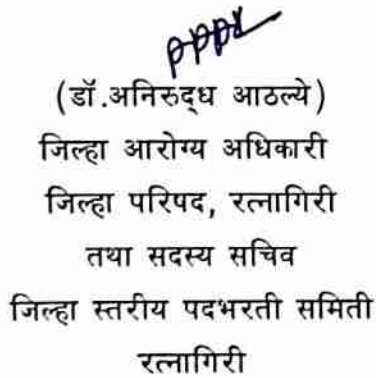 (डॉ.अनिरुद्ध आठल्ये)
जिल्हा आरोग्य अधिकारी
जिल्हा परिषद, रत्नागिरी
तथा सदस्य सचिव
जिल्हा स्तरीय पदभरती समिती
रत्नागिरी